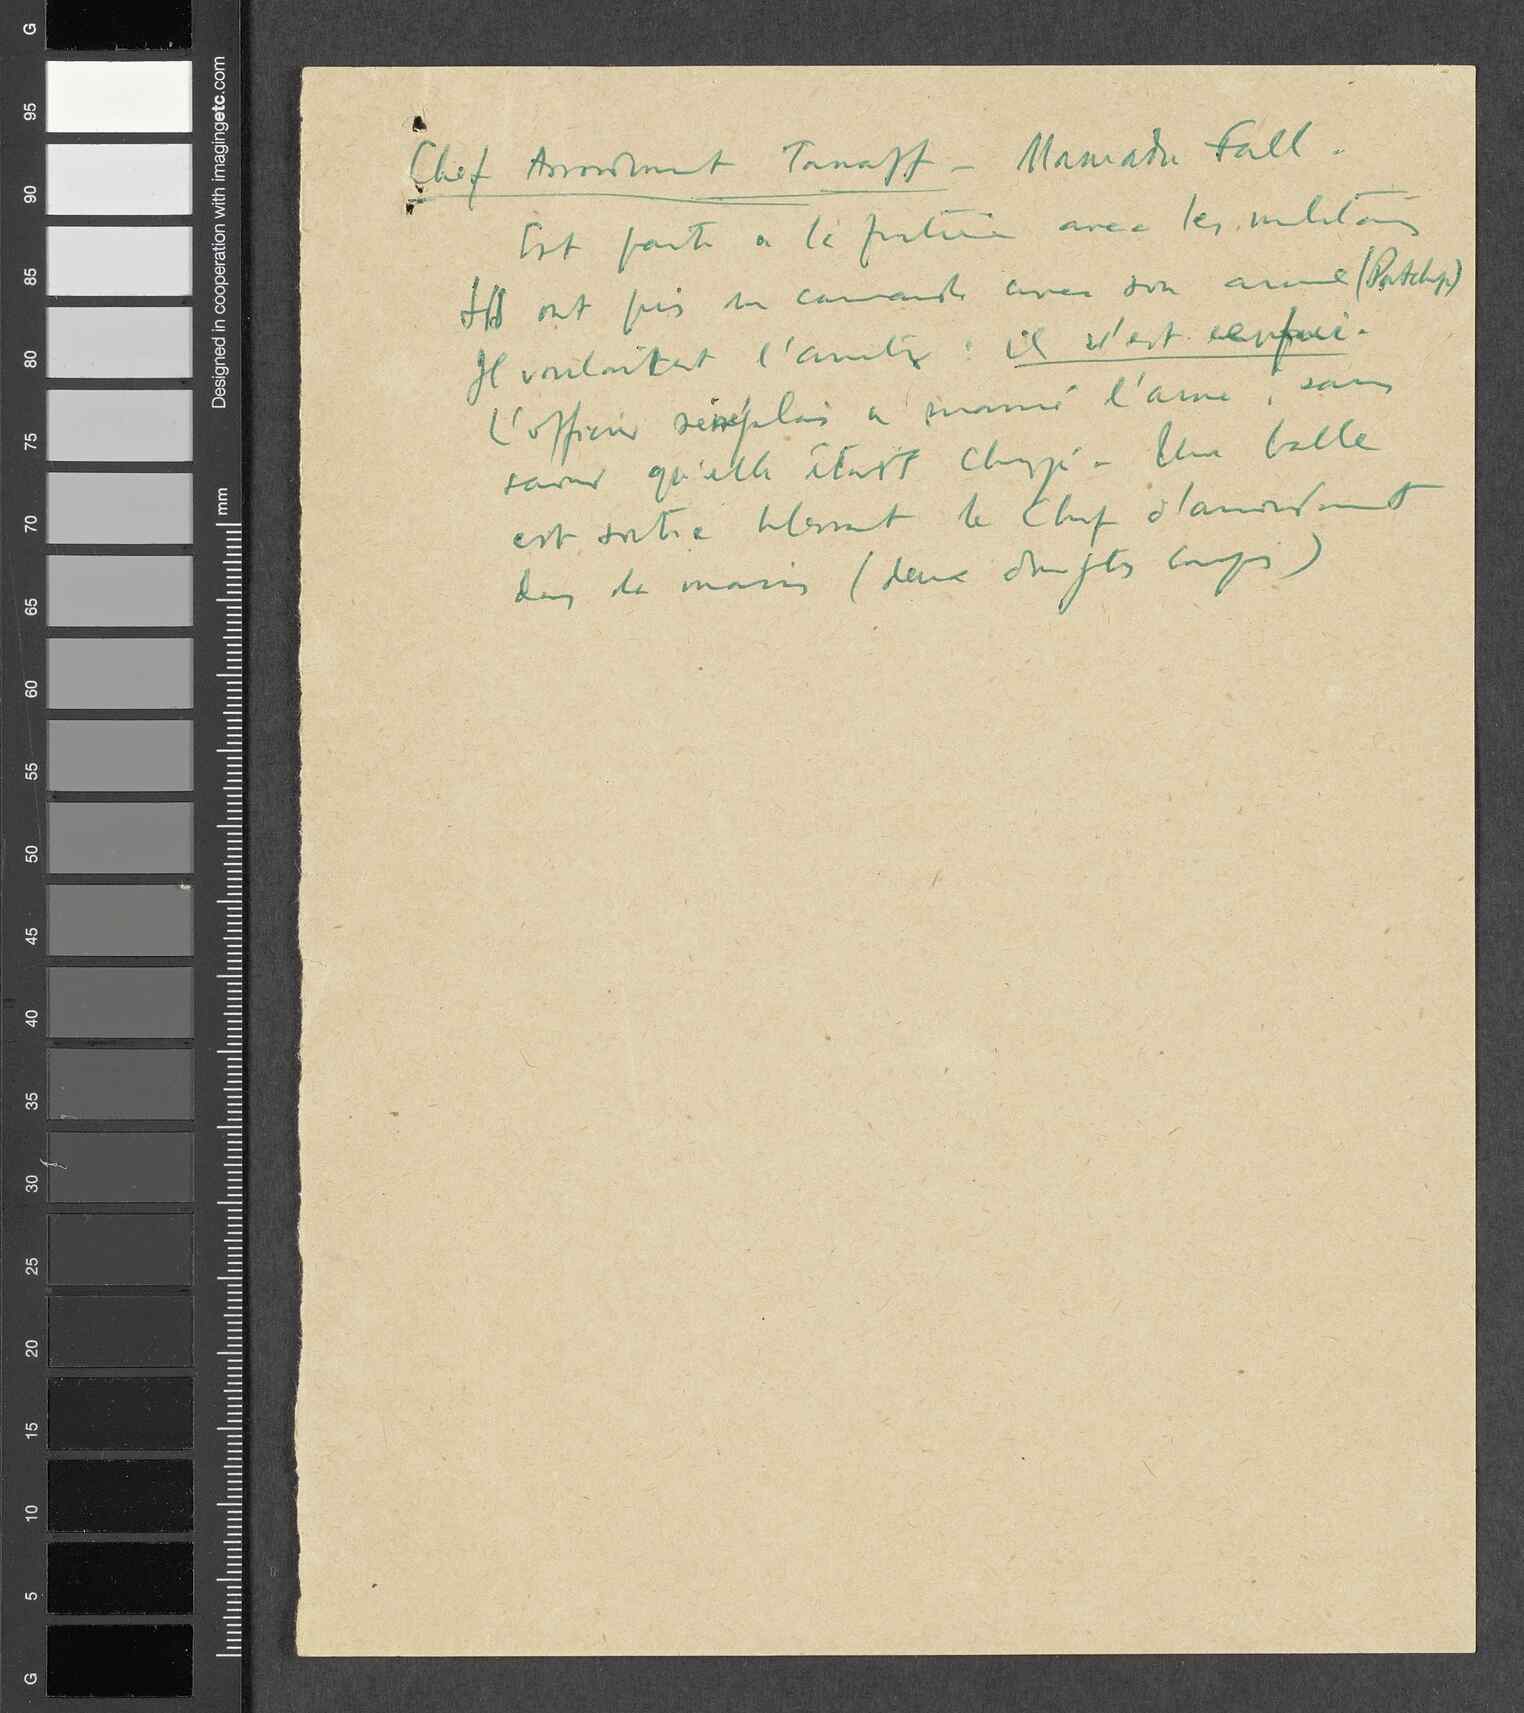 Chef Arrondiment Tanaff - Mamadu Fall.
Est parti a la frontière avec les militaires
Ils ont pris un camarade avec son arme (Patchep)
Il voulaitent l'arrêter : il s'est enfui.
L'officier sénégalais a manié l'arme, sans
savoir qu'elle était chargé. Une balle
est sortie blessant le Chef d'arrondiment
dans la main (deux doigts coupés)
G
95
90
85
80
75
70
65
60
55
50
45
40
35
30
25
20
15
10
5
G
Designed in cooperation with imagingetc.com
mm